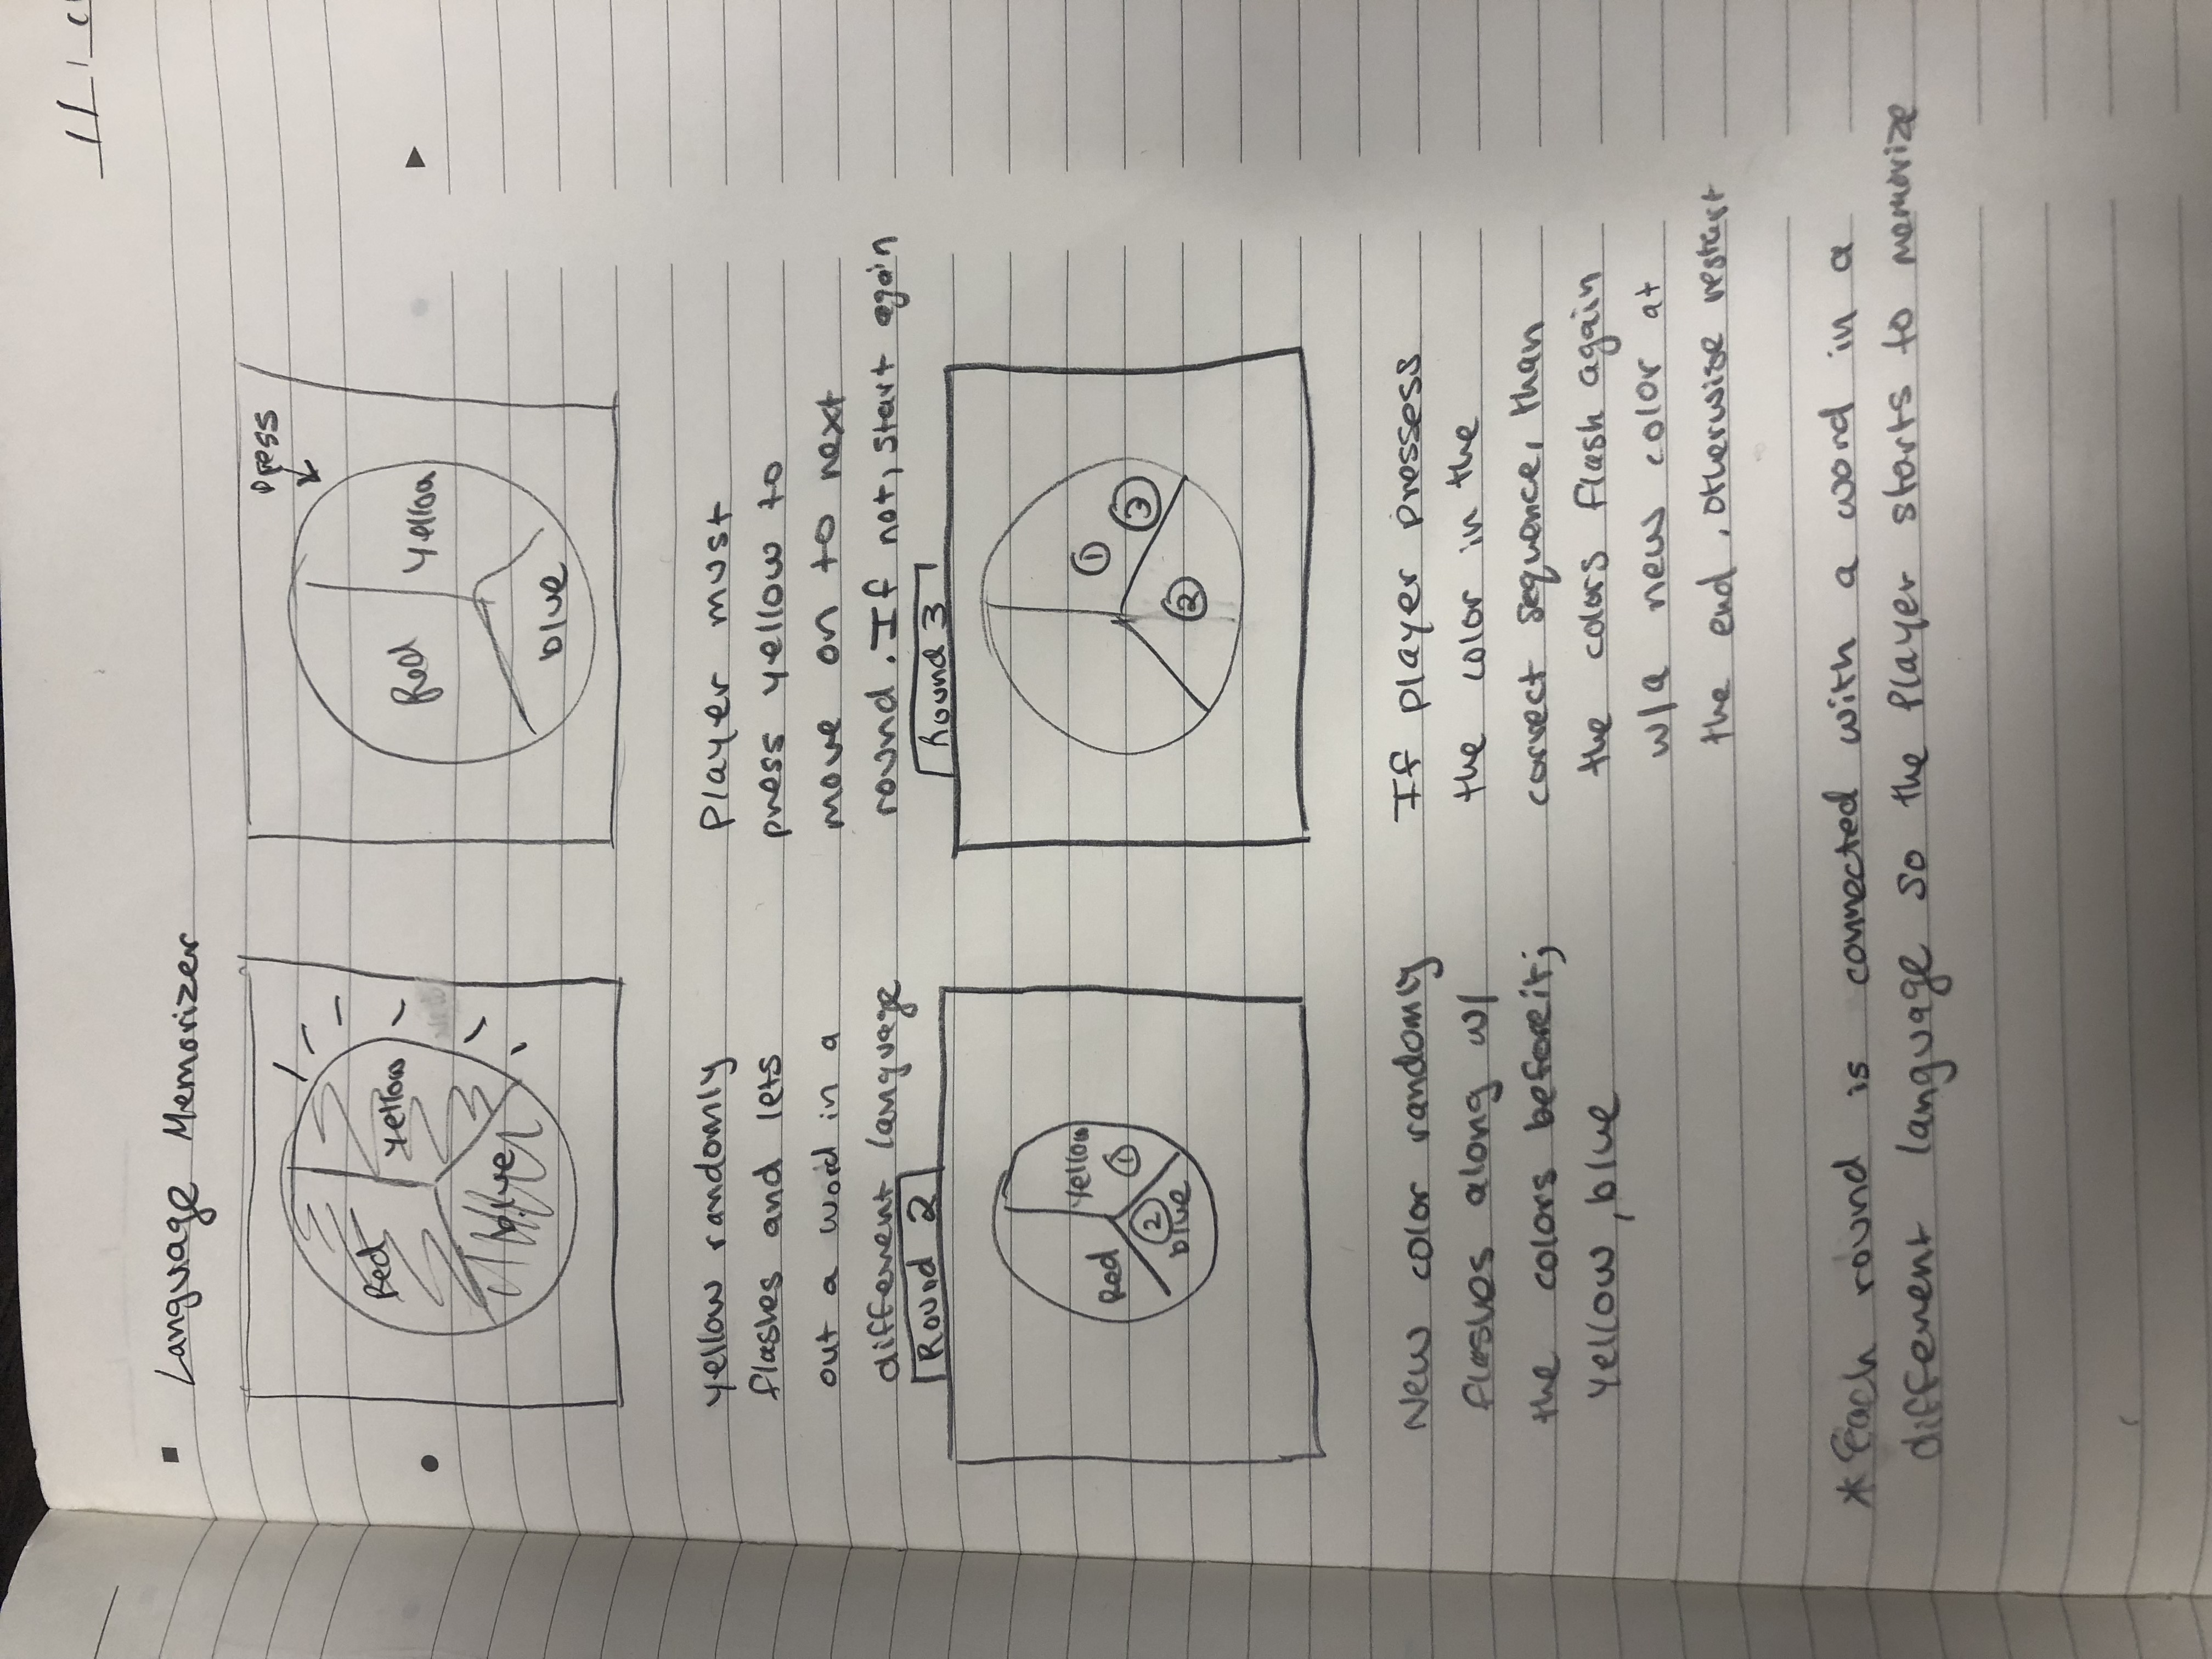 11
Language Memorizer
Red
yellow
blue
press
Red
Yellow
blue
yellow randomly
flashes and lets
out a word in a
different language
Player must
press yellow to
move on to next
round. If not, start again
Round 2
Red
Yellow
1
2
blue
Round 3
1
3
2
New color randomly
flashes along w/
the colors before it;
Yellow, blue
If player pressess
the color in the
correct sequence, than
the colors flash again
w/a new color at
the end. otherwise restart
* Each round is connected with a word in a
different language so the Player starts to memorize